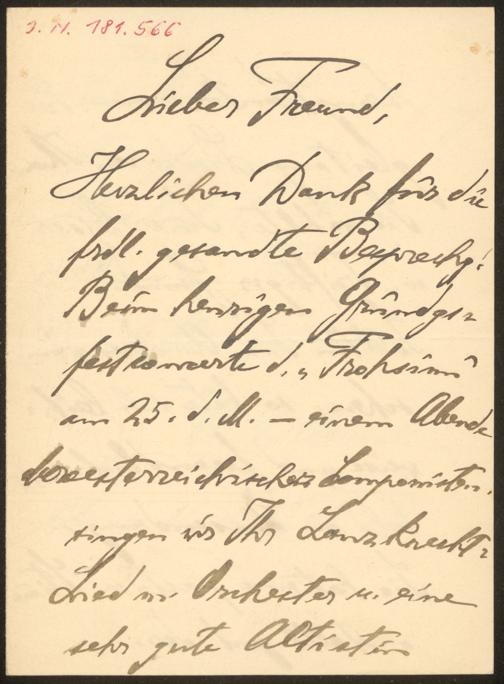 I. N. 181.566
Lieber Freund,
Herzlichen Dank für die
frdl. gesandte Besprechg.!
Beim heurigen Gründgs-
festkonzerte d. „Frohsinn“
am 25. d. M. – einem Abend
oberoesterreichischer Componisten,
singen wir Ihr Landsknecht-
Lied m. Orchester u. eine
sehr gute Altistin